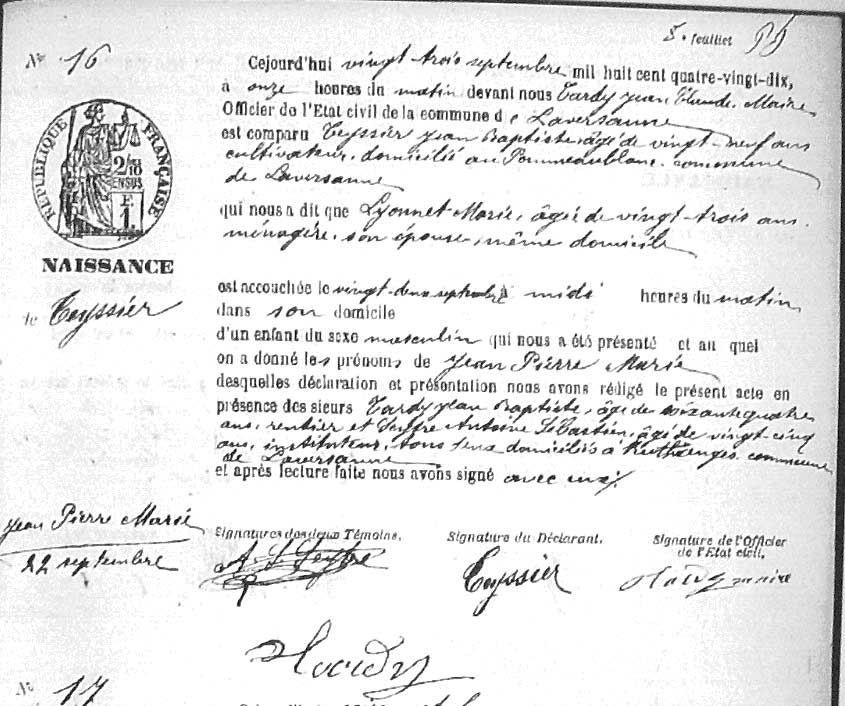 8e feuillet
No 16
Cejourd'hui vingt trois septembre mil huit cent quatre-vingt-dix,
à onze heures du matin devant nous Tardy Jean Claude, Maire
Officier de l'Etat civil de la commune de Laversanne
est comparu Teyssier Jean Baptiste, âgé de vingt-neuf ans
cultivateur, domicilié au Pommeaublanc, commune
de Laversanne
qui nous a dit que Lyonnet Marie, âgée de vingt-trois ans
ménagère, son épouse, même domicile
RÉPUBLIQUE FRANÇAISE
2/10
EN SUS
F.
1.
NAISSANCE
de Teyssier
est accouchée le vingt-deux septembre à midi heures du matin
dans son domicile
d'un enfant du sexe masculin qui nous a été présenté et au quel
on a donné les prénoms de Jean Pierre Marie
desquelles déclaration et présentation nous avons rédigé le présent acte en
présence des sieurs Tardy Jean Baptiste, âgé de soixante quatre
ans, rentier et Antoine Sébastien, âgé de vingt-cinq
ans, instituteur, tous deux domiciliés à commune
de Laversanne
et après lecture faite nous avons signé avec eux.
Jean Pierre Marie
22 septembre
Signatures des deux Témoins.
Signature du Déclarant.
Signature de l'Officier
de l'Etat civil.
Teyssier
Tardy maire
Tardy
No 17